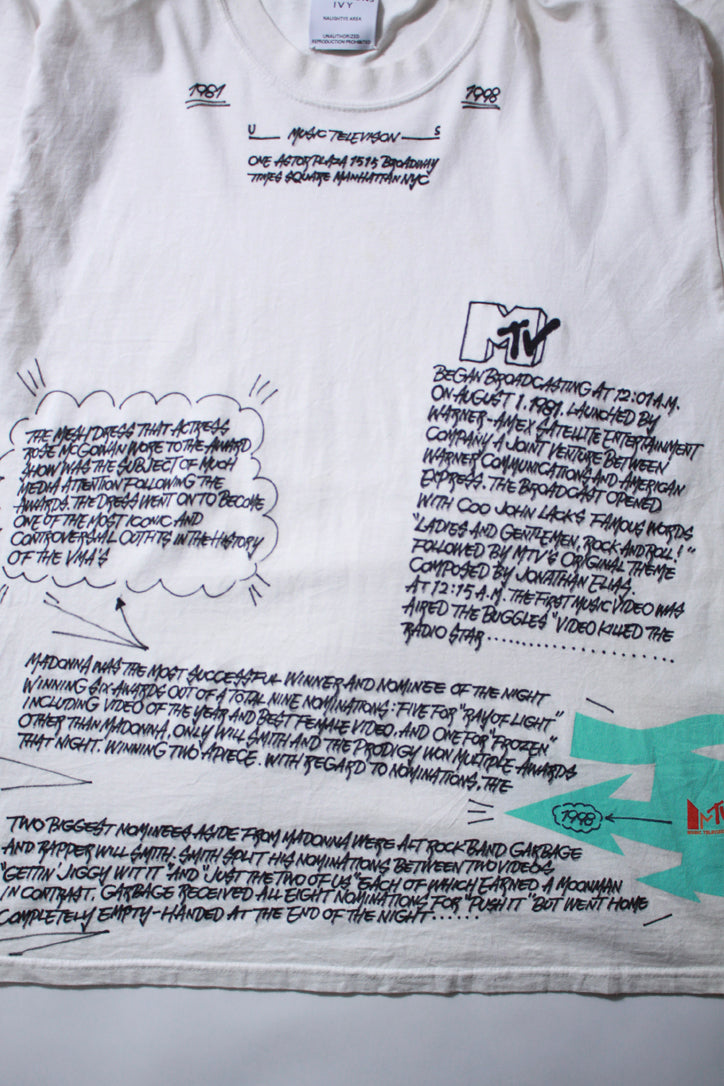 IVY
NAUGHTYS AREA
UNAUTHORIZED
REPRODUCTION PROHIBITED
1981
1998
U MUSIC TELEVISON S
ONE ASTOR PLAZA 1515 BROADWAY
TIMES SQUARE MANHATTAN NYC
MTV
BEGAN BROADCASTING AT 12:01 A.M.
ON AUGUST 1, 1981, LAUNCHED BY
WARNER-AMEX SATELLITE ENTERTAINMENT
COMPANY A JOINT VENTURE BETWEEN
WARNER COMMUNICATIONS AND AMERICAN
EXPRESS. THE BROADCAST OPENED
WITH COO JOHN LACK'S FAMOUS WORDS
"LADIES AND GENTLEMEN, ROCK AND ROLL!"
FOLLOWED BY MTV'S ORIGINAL THEME
COMPOSED BY JONATHAN ELIAS.
AT 12:15 A.M. THE FIRST MUSIC VIDEO WAS
AIRED THE BUGGLES "VIDEO KILLED THE
RADIO STAR....................
THE MESH DRESS THAT ACTRESS
ROSE MCGOWAN WORE TO THE AWARD
SHOW WAS THE SUBJECT OF MUCH
MEDIA ATTENTION FOLLOWING THE
AWARDS. THE DRESS WENT ON TO BECOME
ONE OF THE MOST ICONIC AND
CONTROVERSIAL OUTFITS IN THE HISTORY
OF THE VMA'S
MADONNA WAS THE MOST SUCCESSFUL WINNER AND NOMINEE OF THE NIGHT
WINNING SIX AWARDS OUT OF A TOTAL NINE NOMINATIONS: FIVE FOR "RAY OF LIGHT"
INCLUDING VIDEO OF THE YEAR AND BEST FEMALE VIDEO, AND ONE FOR "FROZEN"
OTHER THAN MADONNA, ONLY WILL SMITH AND THE PRODIGY WON MULTIPLE AWARDS
THAT NIGHT. WINNING TWO APIECE. WITH REGARD TO NOMINATIONS, THE
1998
MTV
TWO BIGGEST NOMINEES ASIDE FROM MADONNA WERE ALT ROCK BAND GARBAGE
AND RAPPER WILL SMITH. SMITH SPLIT HIS NOMINATIONS BETWEEN TWO VIDEOS
"GETTIN' JIGGY WIT IT" AND "JUST THE TWO OF US" EACH OF WHICH EARNED A MOONMAN
IN CONTRAST, GARBAGE RECEIVED ALL EIGHT NOMINATIONS FOR "PUSH IT" BUT WENT HOME
COMPLETELY EMPTY-HANDED AT THE END OF THE NIGHT......